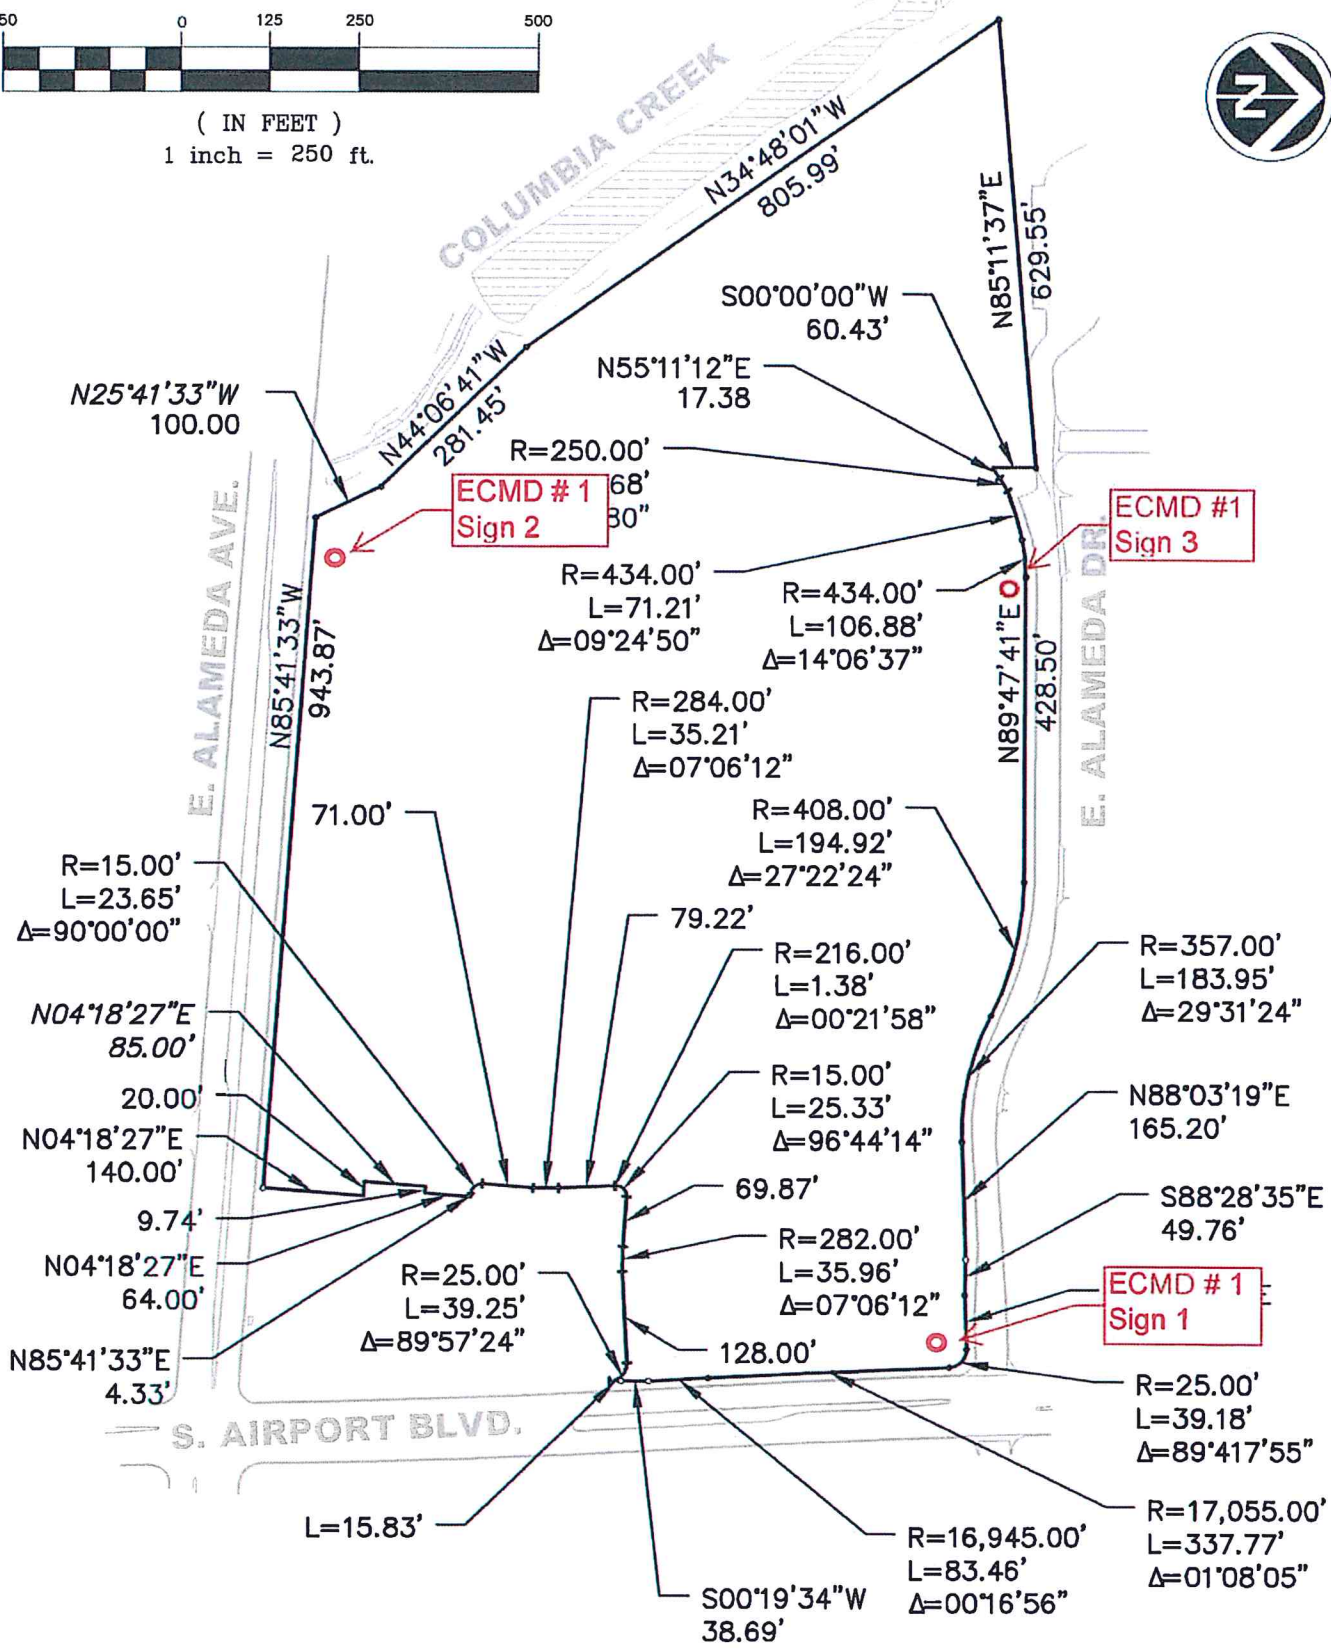 50
0
125
250
500
( IN FEET )
1 inch = 250 ft.
N
COLUMBIA CREEK
N34°48'01"W
805.99'
N85°11'37"E
629.55'
S00°00'00"W
60.43'
N55°11'12"E
17.38
N25°41'33"W
100.00
N44°06'41"W
281.45'
R=250.00'
68'
30"
ECMD # 1
Sign 2
ECMD #1
Sign 3
E. ALAMEDA AVE.
R=434.00'
L=71.21'
Δ=09°24'50"
R=434.00'
L=106.88'
Δ=14°06'37"
N85°41'33"W
943.87'
N89°47'41"E
428.50'
E. ALAMEDA DR.
R=284.00'
L=35.21'
Δ=07°06'12"
71.00'
R=408.00'
L=194.92'
Δ=27°22'24"
R=15.00'
L=23.65'
Δ=90°00'00"
79.22'
R=216.00'
L=1.38'
Δ=00°21'58"
R=357.00'
L=183.95'
Δ=29°31'24"
N04°18'27"E
85.00'
R=15.00'
L=25.33'
Δ=96°44'14"
20.00'
N88°03'19"E
165.20'
N04°18'27"E
140.00'
69.87'
S88°28'35"E
49.76'
9.74'
N04°18'27"E
64.00'
R=282.00'
L=35.96'
Δ=07°06'12"
R=25.00'
L=39.25'
Δ=89°57'24"
ECMD # 1
Sign 1
N85°41'33"E
4.33'
128.00'
R=25.00'
L=39.18'
Δ=89°417'55"
S. AIRPORT BLVD.
L=15.83'
R=17,055.00'
L=337.77'
Δ=01°08'05"
R=16,945.00'
L=83.46'
Δ=00°16'56"
S00°19'34"W
38.69'